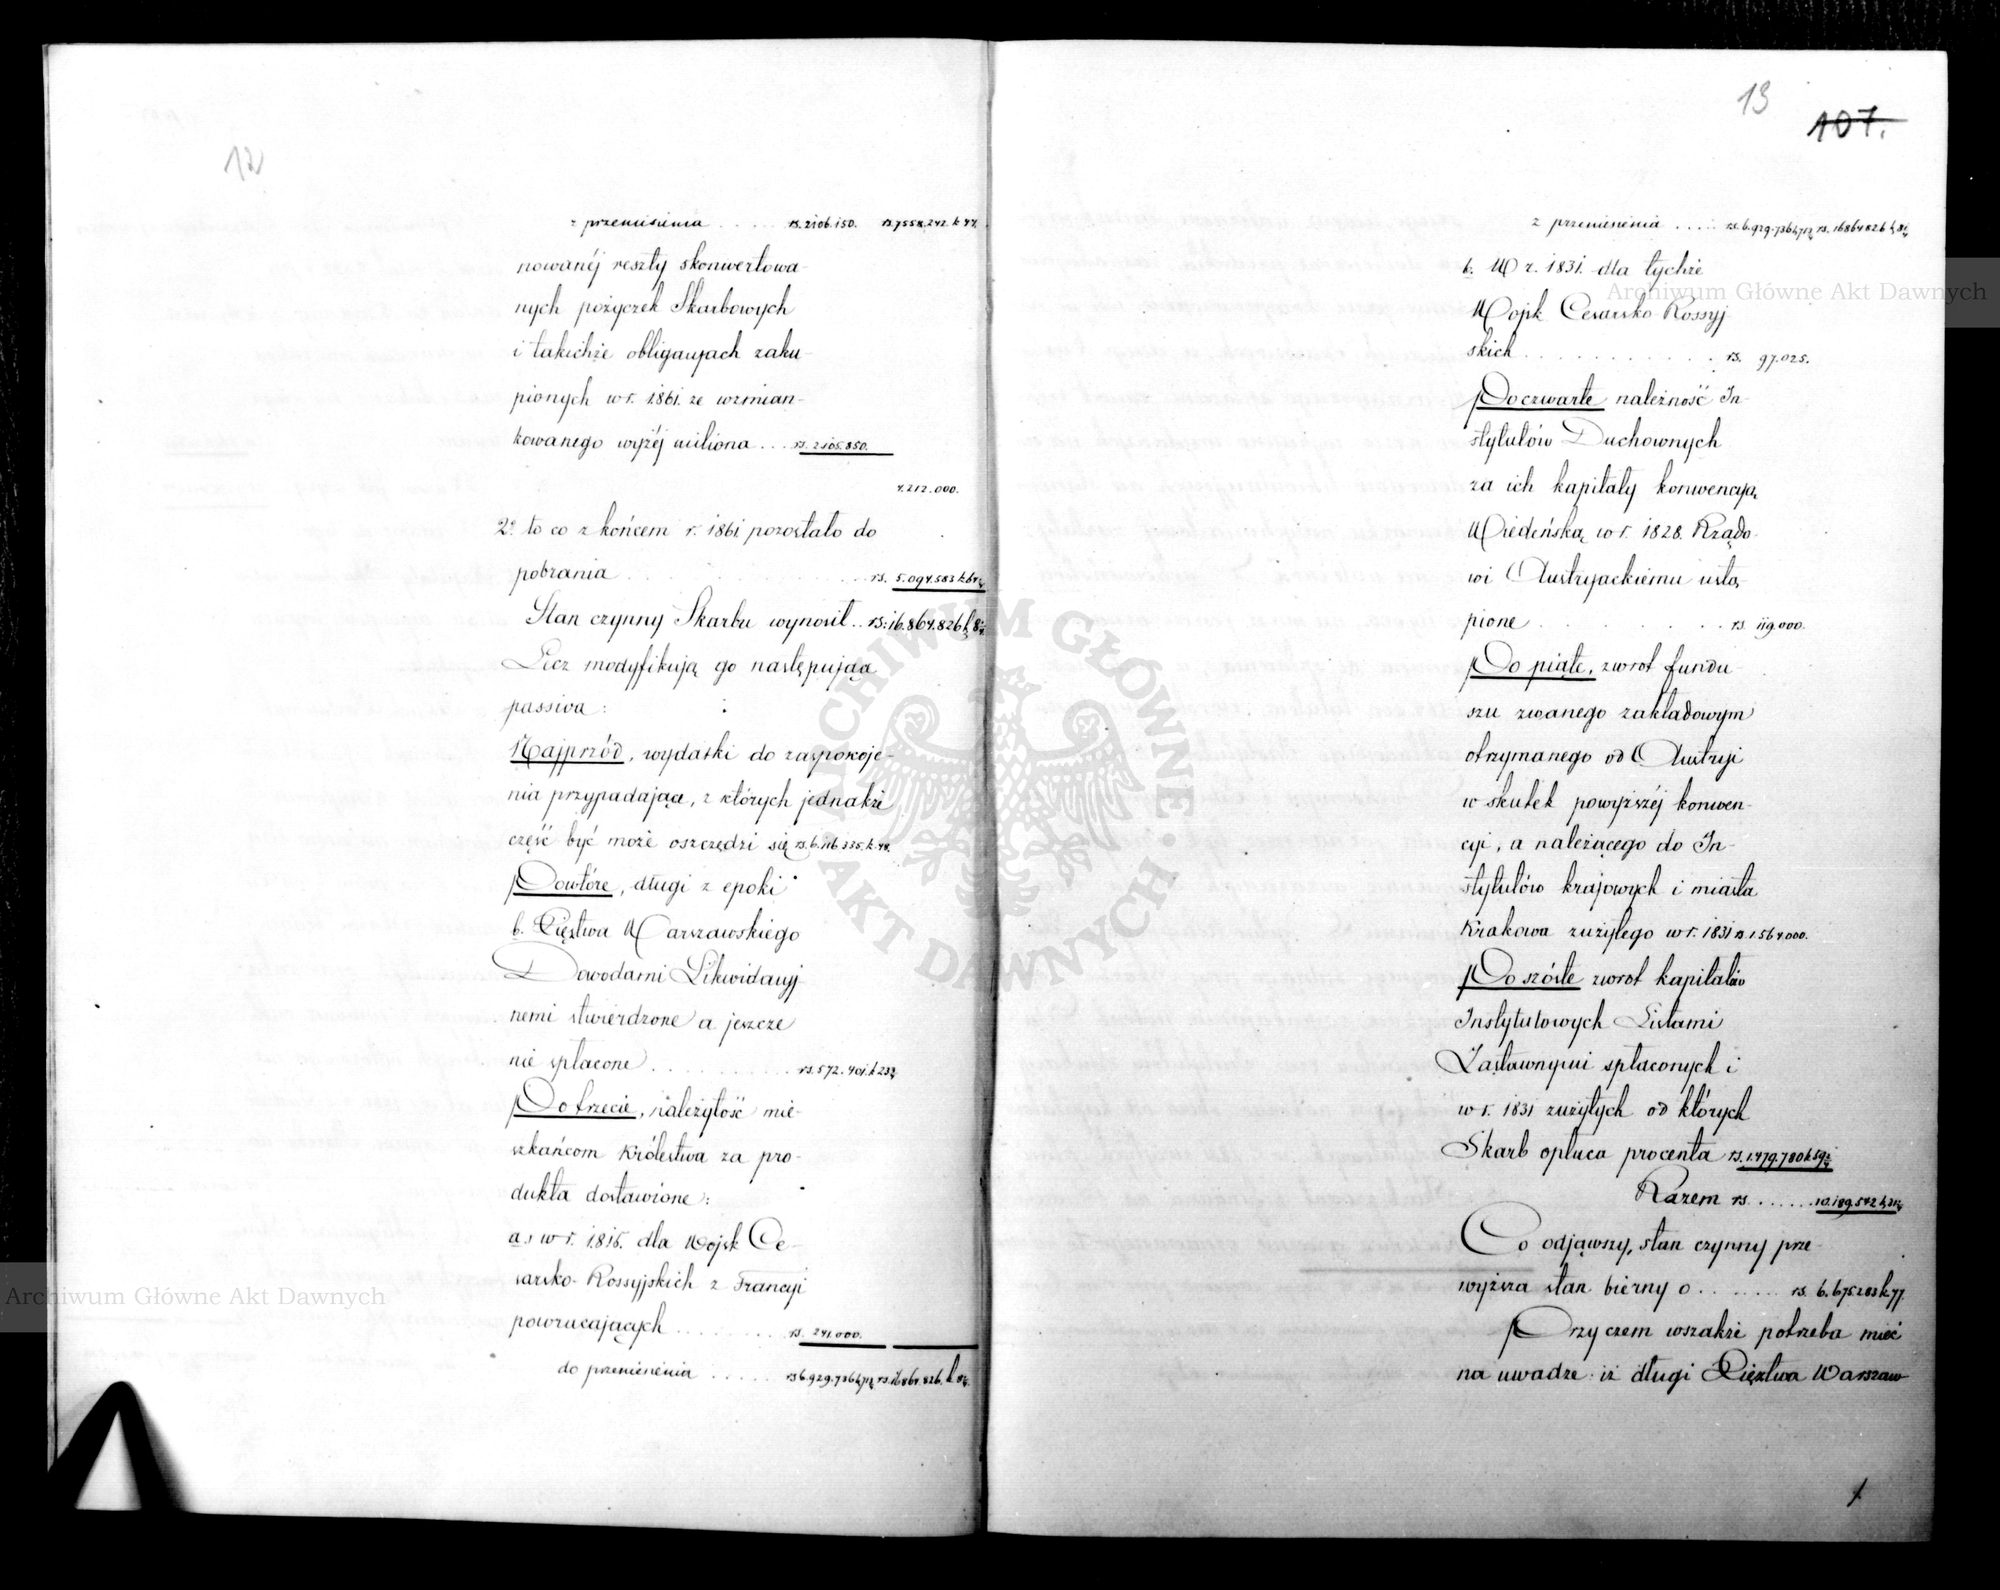 12
z przeniesienia . . . . . rs. 2106.150. rs. 7558.242. k. 44.
nowanéj reszty skonwertowa-
nych pożyczek Skarbowych
i takichże obligacyach zaku-
pionych w r. 1861. ze wzmian-
kowanego wyżéj miliona . . . rs. 2105.850.
4.212.000.
2º. to co z końcem r. 1861 pozostało do
pobrania . . . . . rs. 5.094.583 k.
Stan czynny Skarbu wynosił . . rs. 16.864.826 k.
Lecz modyfikują go następujące
passiva:
Najprzód, wydatki do zaspokoje-
nia przypadające, z których jednakże
część być może oszczędzi się rs. 6.116.335. k. 48.
Powtóre, długi z epoki
b. Xięstwa Warszawskiego
Dowodami Likwidacyj-
nemi stwierdzone a jeszcze
nie spłacone . . . . . rs. 572.401. k 23½
Po trzecie, należytość mie-
szkańcom Królestwa za pro-
dukta dostawione:
a., w r. 1815. dla Wojsk Ce-
sarsko-Rossyjskich z Francyi
powracających . . . . . rs. 241.000.
do przeniesienia . . . . . rs 6.929.736 k. 71½ rs. 16.864.826. k.
13
107.
z przeniesienia . . . . . rs. 6.929.736 k. 71½ rs. 16864826 k.
b. W r. 1831. dla tychże
Wojsk Cesarsko-Rossyj
skich . . . . . rs. 97.025.
Po czwarte należność In-
stytutów Duchownych
za ich kapitały konwencyą
Wiedeńską w r. 1828. Rządo-
wi Austryjackiemu ustą-
pione . . . . . rs. 119.000.
Po piąte, zwrot fundu-
szu zwanego zakładowym
otrzymanego od Austryi
w skutek powyższéj konwen-
cyi, a należącego do In-
stytutów krajowych i miasta
Krakowa zużytego w r. 1831 rs. 1.564.000.
Po szóste zwrot kapitałów
Instytutowych Listami
Zastawnymi spłaconych i
w r. 1831 zużytych od których
Skarb opłaca procenta rs. 1.479.780 k 59½
Razem rs. . . . . . 10.189.542 k. 31½
Co odjąwszy, stan czynny prze-
wyższa stan bierny o . . . . . rs. 6.675.283 k. 77.
Przyczem wszakże potrzeba mieć
na uwadze: iż długi Xięztwa Warszaw-
Archiwum Główne Akt Dawnych
Archiwum Główne Akt Dawnych
ARCHIWUM GŁÓWNE AKT DAWNYCH